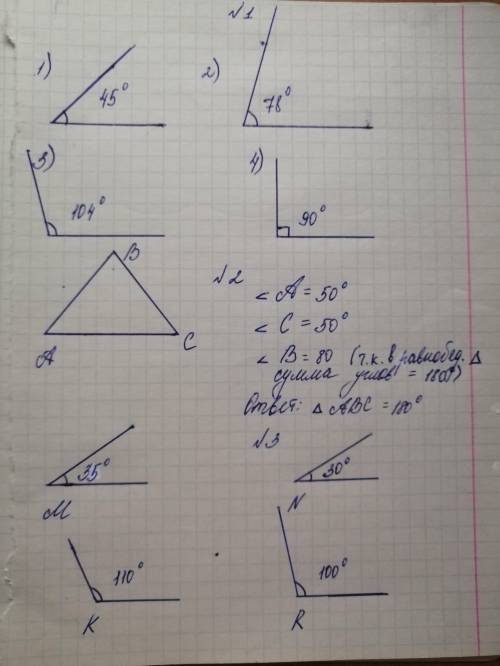 №1
1) 45°
2) 78°
3) 104°
4) 90°
B
A
C
№2
< A = 50°
< C = 50°
< B = 80 (т.к. в равнобед. △
сумма углов = 180°)
Ответ: △ ABC = 180°
№3
35°
M
30°
N
110°
K
100°
R